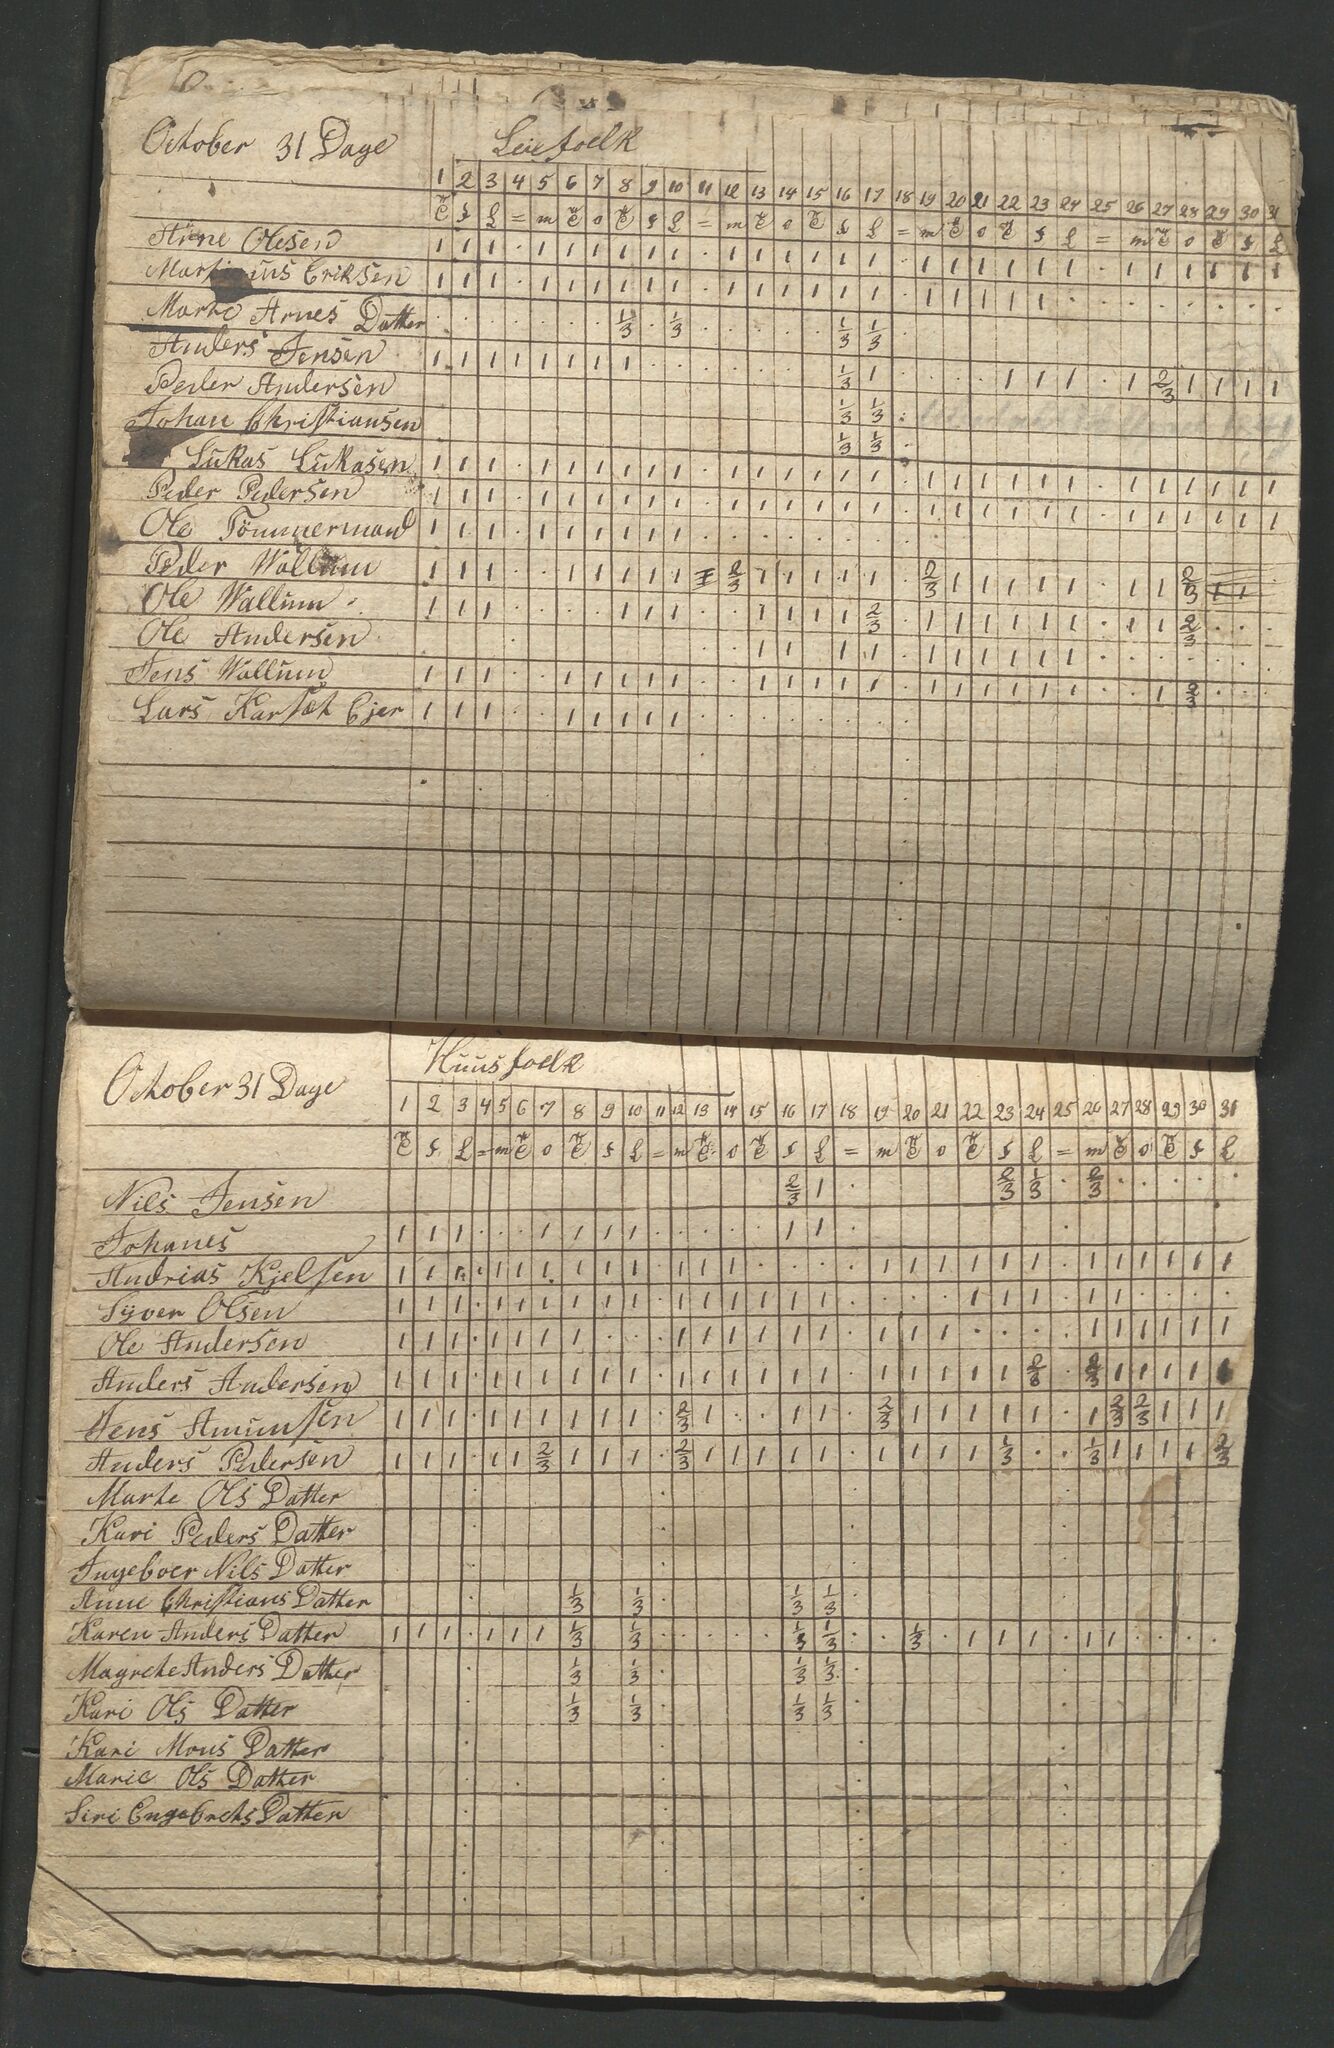 October 31 Dage Leiefolk
1 2 3 4 5 6 7 8 9 10 11 12 13 14 15 16 17 18 19 20 21 22 23 24 25 26 27 28 29 30 31
Arne Olesen 1 1 1 · 1 1 1 1 1 1 · 1 1 1 1 1 1 · 1 1 1 1 1 1 · 1 1 1 1 1 1
Eriksen 1 1 1 · 1 1 1 1 1 1 · 1 1 1 1 1 1 · 1 1 1 1 1 · · · · · · · ·
Marte Arnes Datter 1/3 · 1/3 1/3 1/3
Anders Jensen 1 1 1 1 1 1 1 1 1/3 1 1 1 1 · 1 2/3 1 1 1 1
Peder Andersen 1/3 1/3
Johan Christiansen 1/3 1/3
Lukas Lukasen 1 1 1 · 1 1 1 1 1 1 · 1 1 1 1 1 1 · 1 1 1 1 1 1 · 1 1 1 1 1 1
Peder Pedersen 1 1 1 · 1 1 1 1 1 1 · 1 1 1 1 1 1 · 1 1 1 1 1 1 · 1 1 1 1 1 1
Ole Tömmermand 1 1 1 · 1 1 1 1 1 1
Peder Wallum 1 1 1 · · 1 1 1 1 1 1 2/3 1 1 1 1 1 · 2/3 1 1 1 1 1 · 1 1 2/3 1 1
Ole Wallum 1 1 1 · · · · 1 1 1 · · 1 1 1 1 2/3 · 1 1 1 1 1 1 · 1 1 2/3 · · ·
Ole Andersen 1 1 · 1 1 · 1 1 1 1 1 1
Jens Wallum 1 1 1 · · 1 1 1 1 1 · · 1 1 1 1 1 · 1 1 1 1 1 1 · · 1 2/3 · · ·
Lars Ejer 1 1 1 · · 1 1 1 1 1
October 31 Dage Huusfolk
1 2 3 4 5 6 7 8 9 10 11 12 13 14 15 16 17 18 19 20 21 22 23 24 25 26 27 28 29 30 31
Nils Jensen 2/3 1 2/3 1/3 · 2/3
Johanes 1 1 1 · · · 1 1 1 1 1 1
Andrias Kjelsen 1 1 1 · 1 1 1 1 1 1 · 1 1 1 · · · · 1 1 1 1 1 1 · 1 1 1 1 1 1
Syver Olsen 1 1 1 · 1 1 1 1 1 1 · 1 1 1 1 1 1 · · · · 1 1 1 · 1 1 · · · ·
Ole Andersen 1 1 1 · 1 1 1 1 · · · 1 1 1 1 1 1 · 1 1 1 · · · · 1 1 1 1 1 1
Anders Andersen 1 1 1 · 1 1 1 1 1 1 · 1 1 1 1 1 1 · 1 1 1 1 1 2/3 · 2/3 1 1 1 1 1
Jens Amunsen 1 1 1 · 1 1 1 1 1 1 · 2/3 1 · · 1 1 · 2/3 1 1 1 1 1 · 1 2/3 2/3 1 1 1
Anders Pedersen 1 1 1 · 1 1 2/3 1 1 1 · 2/3 1 1 1 1 1 · 1 1 1 1 1/3 · · 1/3 1 1 1 1 2/3
Marte Ols Datter
Kari Peders Datter
Ingeboer Nils Datter
Anne Christians Datter 1/3 1/3 1/3 1/3
Karen Anders Datter 1 1 1 · 1 1 1 1/3 1/3 1/3 1/3 · · 1/3 · 1 1 1 · 1 1
Magrete Anders Datter 1/3 1/3 1/3 1/3
Kari Ols Datter 1/3 1/3 1/3 1/3
Kari Mons Datter
Marie Ols Datter
Siri Engebrets Datter